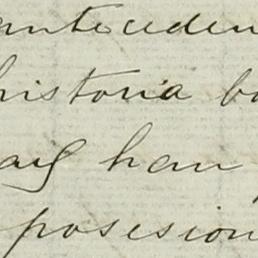 anteceden
historia ba
han
posesion